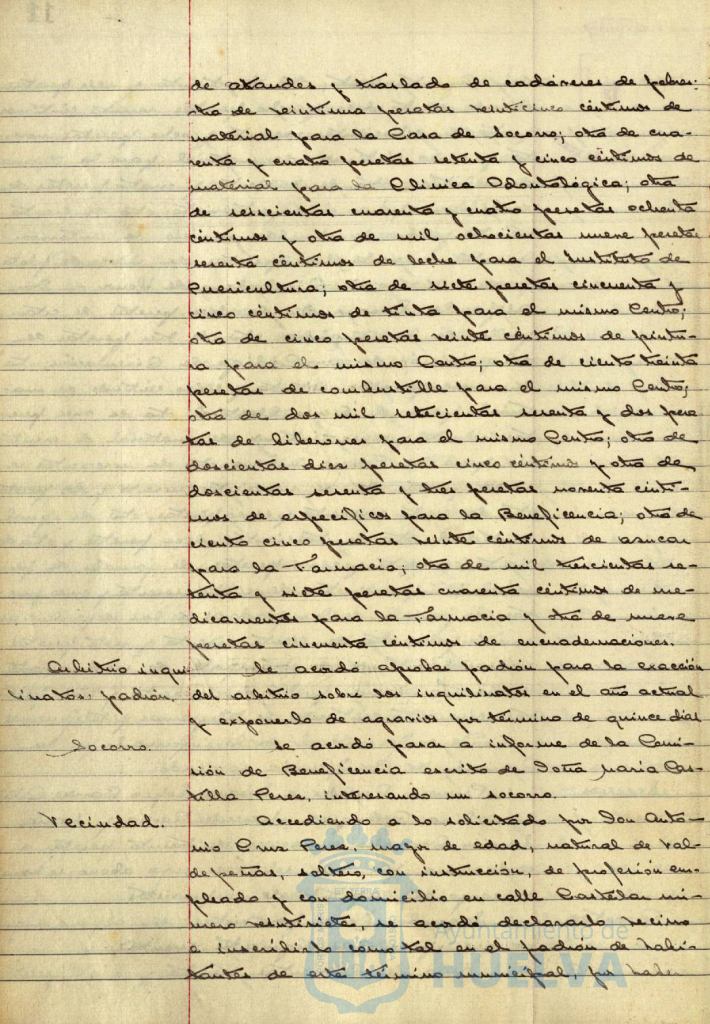 de ataudes y traslado de cadáveres de pobres:
otra de veintiuna pesetas veinticinco céntimos de
material para la Casa de Socorro; otra de cua-
renta y cuatro pesetas setenta y cinco céntimos de
material para la Clinica Odontológica; otra
de seiscientas cuarenta y cuatro pesetas ochenta
céntimos y otra de mil ochocientas nueve pesetas
sesenta céntimos de leche para el Instituto de
Puericultura; otra de siete pesetas cincuenta y
cinco céntimos de tinta para el mismo Centro;
otra de cinco pesetas veinte céntimos de pintu-
ra para el mismo Centro; otra de ciento treinta
pesetas de combustible para el mismo Centro;
otra de dos mil setecientas sesenta y dos pese
tas de biberones para el mismo Centro; otra de
doscientas diez pesetas cinco céntimos y otra de
doscientas sesenta y tres pesetas noventa cénti-
mos de especificos para la Beneficencia; otra de
ciento cinco pesetas veinte céntimos de azucar
para la Farmacia; otra de mil trescientas se-
tenta y siete pesetas cuarenta céntimos de me-
dicamentos para la Farmacia y otra de nueve
pesetas cincuenta céntimos de encuadernaciones.
Arbitrio inqui-
linatos: padrón.
Se acordó aprobar padrón para la exacción
del arbitrio sobre los inquilinatos en el año actual
y exponerlo de agravios por término de quince dias
Socorro.
Se acordó pasar a informe de la Comi-
sión de Beneficencia escrito de Doña Maria Cas-
tilla Perez, interesando un socorro.
Vecindad.
Accediendo a lo solicitado por Don Anto-
nio Cruz Perez, mayor de edad, natural de Val-
depeñas, soltero, con instrucción, de profesión em-
pleado y con domicilio en calle Castelar nú-
mero veintisiete, se acordó declararlo vecino
e inscribirlo como tal en el padrón de habi-
tantes de este término municipal, por haber
Ayuntamiento de
HUELVA